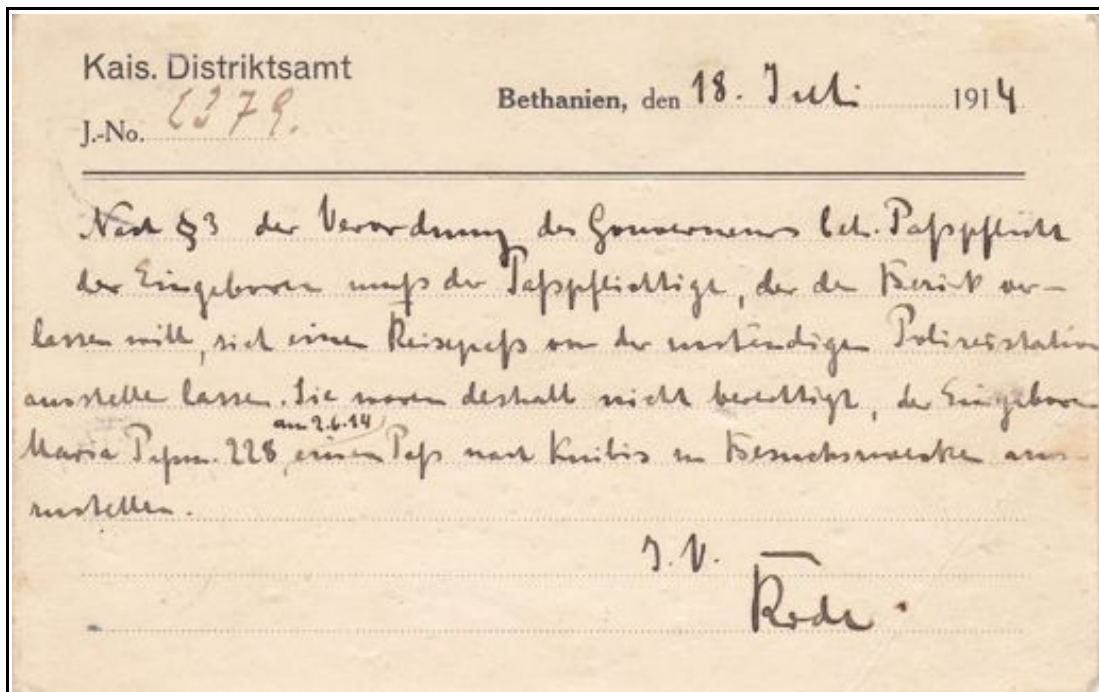 Kais. Distriktsamt
J.-No. 2379.
Bethanien, den 18. Juli 1914
Nach § 3 der Verordnung des Gouverneurs betr. Paßpflicht
der Eingeboren muß der Paßpflichtige, der den Bezirk ver-
lassen will, sich einen Reisepaß von der zuständigen Polizeistation
ausstellen lassen. Sie waren deshalb nicht berechtigt, der Eingeboren
am 2.6.14
Maria 228, einen Paß nach Kuibis zu Besuchszwecken aus-
zustellen.
I. V.